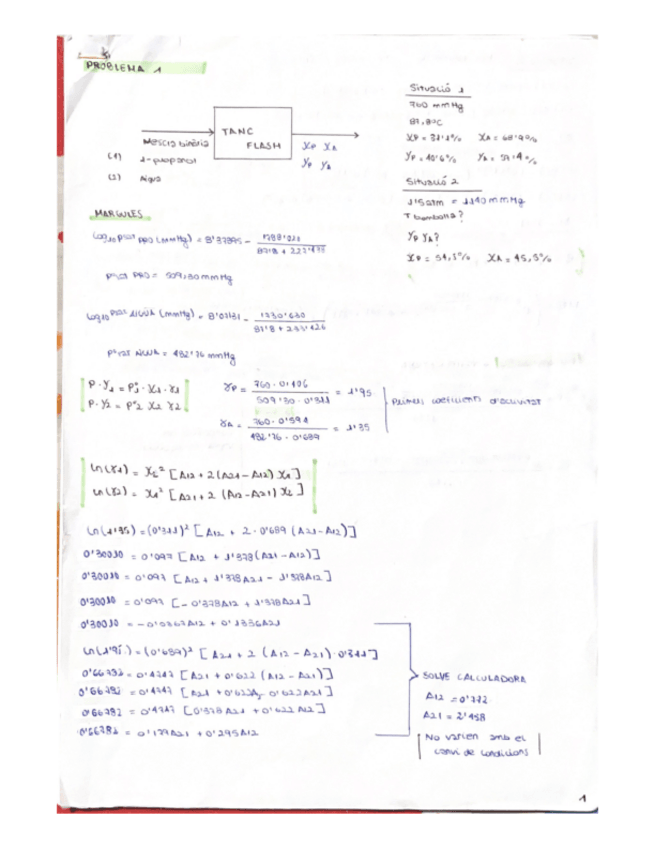 PROBLEMA 1
Situació 1
760 mmHg
87,8ºC
xp = 31'1% xA = 68'9%
yp = 40'6% yA = 59'4%
Situació 2
1'5 atm = 1140 mmHg
T bombolla?
yp yA?
xp = 54,5% xA = 45,5%
TANC
FLASH
Mescla binària
xp xA
yp yA
(1) 2-propanol
(2) Aigua
MARGULES
log10 Psat PRO (mmHg) = 8'37895 -
Psat PRO = 509'30 mmHg
log10 Psat AIGUA (mmHg) = 8'07131 - 1730'630
Psat AIGUA = 482'76 mmHg
P · y1 = Pº1 · x1 · γ1
P · y2 = Pº2 x2 γ2
γp = 760 · 0'406 / 509'30 · 0'311 = 1'95
γA = 760 · 0'594 / 482'76 · 0'689 = 1'35
Primers coeficients d'activitat
ln(γ1) = x2² [A12 + 2(A21 - A12) x1]
ln(γ2) = x1² [A21 + 2 (A12 - A21) x2]
ln(1'35) = (0'311)² [A12 + 2 · 0'689 (A21 - A12)]
0'30010 = 0'097 [A12 + 1'378(A21 - A12)]
0'30010 = 0'097 [A12 + 1'378A21 - 1'378A12]
0'30010 = 0'097 [-0'378A12 + 1'378A21]
0'30010 = -0'0367A12 + 0'1336A21
ln(1'95) = (0'689)² [A21 + 2 (A12 - A21) · 0'311]
0'66782 = 0'4747 [A21 + 0'622 (A12 - A21)]
0'66782 = 0'4747 [A21 + 0'622A12 - 0'622A21]
0'66782 = 0'4747 [0'378 A21 + 0'622 A12]
0'66782 = 0'179A21 + 0'295A12
SOLVE CALCULADORA
A12 = 0'772
A21 = 2'458
No varien amb el
canvi de condicions
1